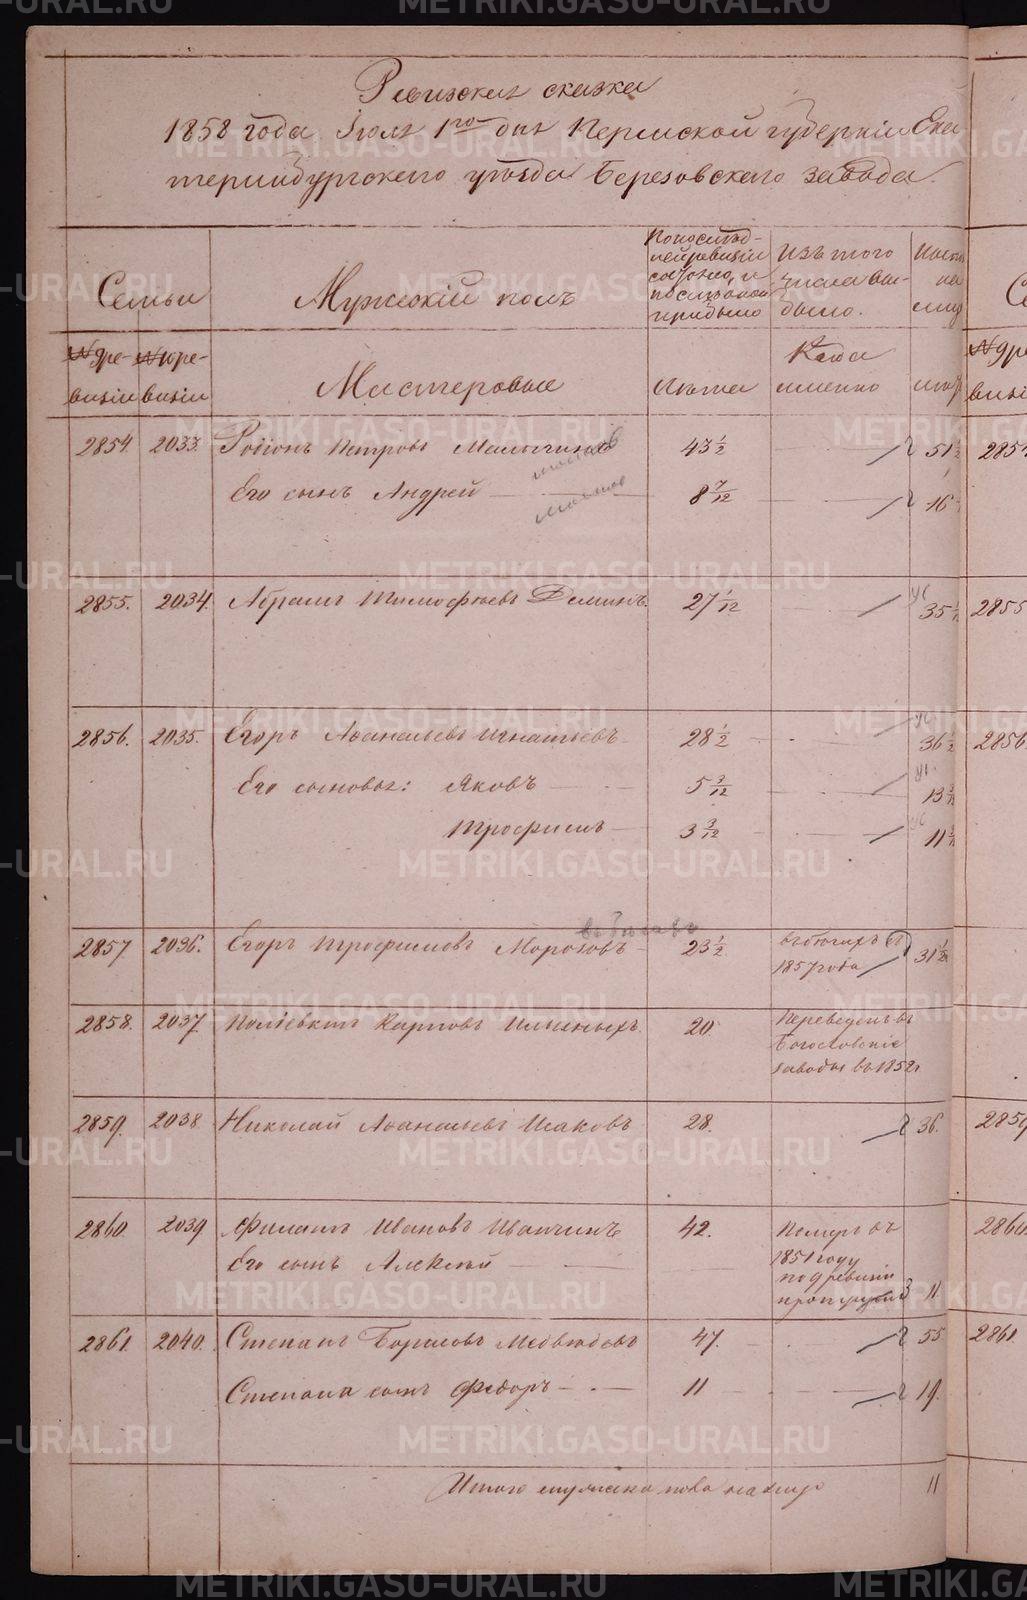 Ревижская сказка
1858 года Іюля 1го дня Пермской губерніи Ека
теринбургскаго уѣзда Березовскаго завода.
Семьи
Мужескій полъ
По послѣд-
ней ревизіи
состояло, и
послѣ оной
прибыло
Изъ того
числа вы-
было.
на
лицо
№ 9 ре-
визіи
№ 10 ре-
визіи
Мастеровые
Лѣта
Когда
именно
2854. 2033. Родіонъ Петровъ 43 1/2 51 1/2
Его сынъ Андрей 8 7/12 16
2855. 2034. Абрамъ Тимофѣевъ Деминъ. 27 1/12 35
2856. 2035. Егоръ Аѳанасьевъ Игнатьевъ 28 1/2 36 1/2
Его сыновья: Яковъ 5 3/12 13
Трофимъ 3 3/12 11
2857 2036. Егоръ Трофимовъ Морозовъ 23 1/2 въ бѣгахъ съ 1857 года 31 1/2
2858. 2037 Поліевктъ Карповъ Ильиныхъ. 20 Переведенъ въ
Богословскіе
заводы въ 1852 г
2859. 2038 Николай Аѳанасьевъ Исаковъ 28. 36.
2860. 2039 Филатъ Ивановъ 42. Померъ въ
1851 году
Его сынъ Алексѣй по 9 ревизіи
пропущенъ 11
2861. 2040. Степанъ Борисовъ Медвѣдевъ 47. 55
Степана сынъ Федоръ 11 19.
Итого мужеска пола на лицо 11
2854
2855
2856
2859
2860
2861.
METRIKI.GASO-URAL.RU